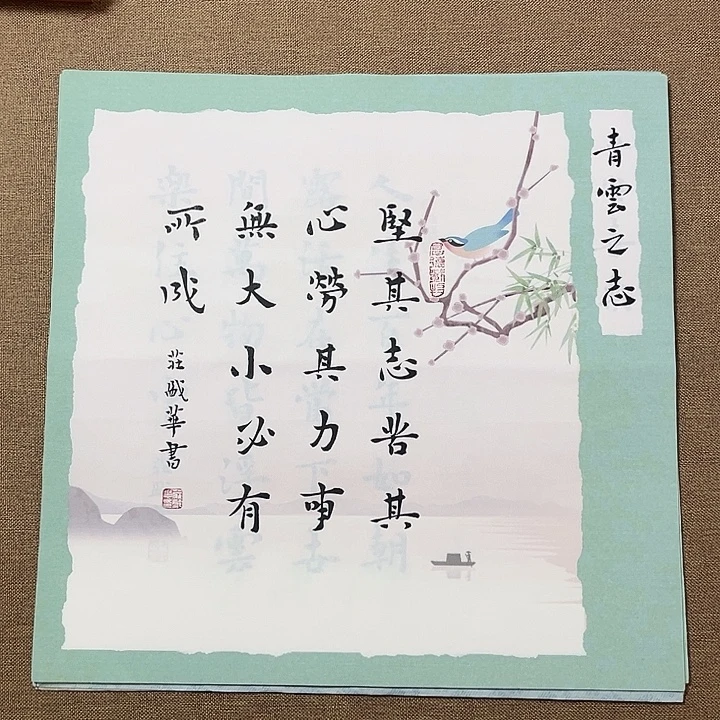 青雲之志
堅其志苦其
心勞其力事
無大小必有
所成
莊誠華書